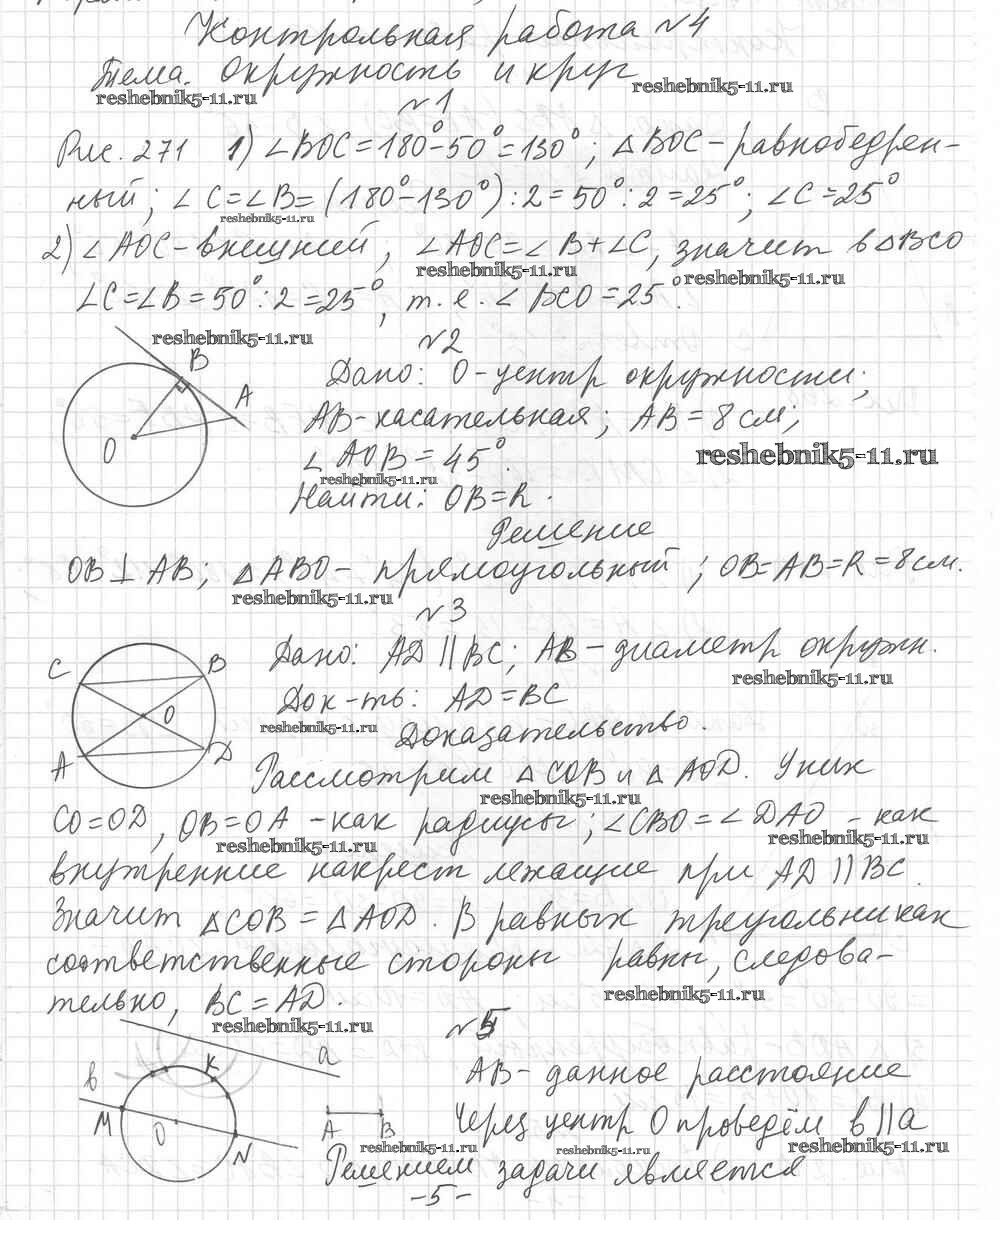 Контрольная работа №4
Тема. Окружность и круг
reshebnik5-11.ru
reshebnik5-11.ru
№1
Рис. 271 1) ∠BOC=180°-50°=130°; △BOC-равнобедрен-
ный; ∠C=∠B=(180°-130°):2=50°:2=25°; ∠C=25°
reshebnik5-11.ru
2) ∠AOC-внешний; ∠AOC=∠B+∠C, значит в △BCO
reshebnik5-11.ru
reshebnik5-11.ru
∠C=∠B=50°:2=25°, т.е. ∠BCO=25°.
reshebnik5-11.ru
№2
B
A
O
Дано: O-центр окружности;
AB-касательная; AB=8см;
∠AOB=45°.
reshebnik5-11.ru
reshebnik5-11.ru
Найти: OB=R.
Решение
OB⊥AB; △ABO-прямоугольный; OB=AB=R=8см.
reshebnik5-11.ru
№3
C
B
O
A
D
Дано: AD||BC; AB-диаметр окружн.
reshebnik5-11.ru
Док-ть: AD=BC
reshebnik5-11.ru
Доказательство.
Рассмотрим △COB и △AOD. У них
reshebnik5-11.ru
CO=OD, OB=OA-как радиусы; ∠CBO=∠DAO-как
reshebnik5-11.ru
reshebnik5-11.ru
внутренние накрест лежащие при AD||BC.
Значит △COB=△AOD. В равных треугольниках
соответственные стороны равны, следова-
reshebnik5-11.ru
тельно, BC=AD.
reshebnik5-11.ru
a
K
в
M
O
N
A
B
AB-данное расстояние
Через центр O проведём в||a
reshebnik5-11.ru
reshebnik5-11.ru
reshebnik5-11.ru
Решением задачи является
-5-